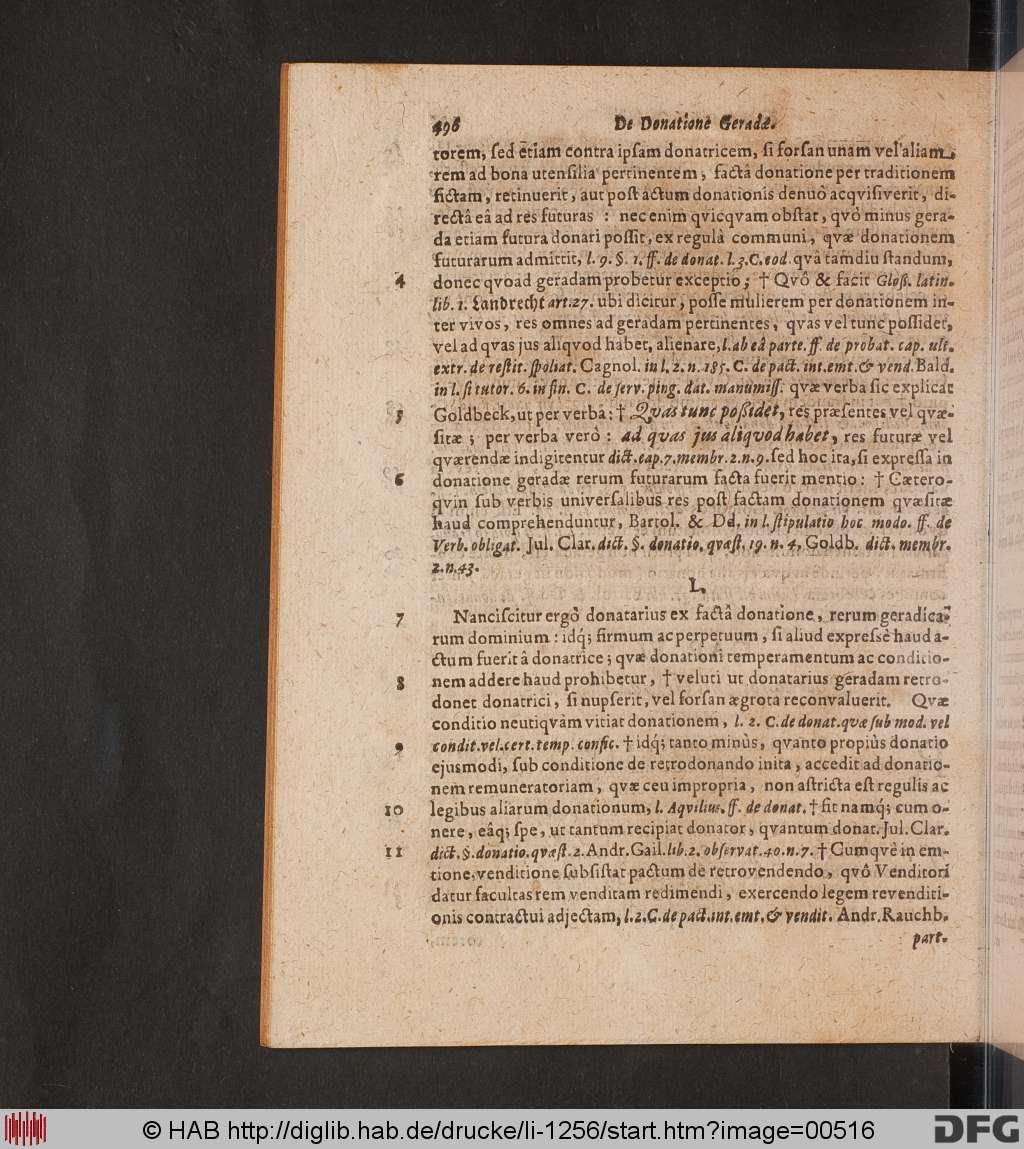 496 De Donatione Geradæ.
torem, sed etiam contra ipsam donatricem, si forsan unam vel aliam
rem ad bona utensilia pertinentem, factâ donatione per traditionem
fictam, retinuerit, aut post actum donationis denuò acqvisiverit, di-
rectâ eâ ad res futuras : nec enim qvicqvam obstat, qvò minus gera-
da etiam futura donari possit, ex regulâ communi, qvæ donationem
futurarum admittit, l. 9. §. 1. ff. de donat. l. 3. C. eod. qvâ tamdiu standum,
4 donec qvoad geradam probetur exceptio; † Qvô & facit Gloß. latin.
lib. 1. Landrecht art. 27. ubi dicitur, posse mulierem per donationem in-
ter vivos, res omnes ad geradam pertinentes, qvas vel tunc possidet,
vel ad qvas jus aliqvod habet, alienare, l. ab eâ parte. ff. de probat. cap. ult.
extr. de restit. spoliat. Cagnol. in l. 2. n. 185. C. de pact. int. emt. & vend. Bald.
in l. si tutor. 6. in fin. C. de serv. ping. dat. manumiss. qvæ verba sic explicat
5 Goldbeck, ut per verba: † Qvas tunc poßidet, res præsentes vel qvæ-
sitæ ; per verba verò : ad qvas jus aliqvod habet, res futuræ vel
qværendæ indigitentur dict. cap. 7. membr. 2. n. 9. sed hoc ita, si expressa in
6 donatione geradæ rerum futurarum facta fuerit mentio: † Cætero-
qvin sub verbis universalibus res post factam donationem qvæsitæ
haud comprehenduntur, Bartol. & Dd. in l. stipulatio hoc modo. ff. de
Verb. obligat. Jul. Clar. dict. §. donatio. qvæst. 19. n. 4. Goldb. dict. membr.
2. n. 43.
L.
7 Nanciscitur ergò donatarius ex factâ donatione, rerum geradica-
rum dominium : idq́; firmum ac perpetuum, si aliud expressè haud a-
ctum fuerit â donatrice ; qvæ donationi temperamentum ac conditio-
8 nem addere haud prohibetur, † veluti ut donatarius geradam retro-
donet donatrici, si nupserit, vel forsan ægrota reconvaluerit. Qvæ
conditio neutiqvàm vitiat donationem, l. 2. C. de donat. qvæ sub mod. vel
9 condit. vel. cert. temp. confic. † idq́; tanto minùs, qvanto propiùs donatio
ejusmodi, sub conditione de retrodonando inita, accedit ad donatio-
nem remuneratoriam, qvæ ceu impropria, non astricta est regulis ac
10 legibus aliarum donationum, l. Aqvilius. ff. de donat. † fit namq́; cum o-
nere, eâq; spe, ut tantum recipiat donator, qvantum donat. Jul. Clar.
11 dict. §. donatio. qvæst. 2. Andr. Gail. lib. 2. observat. 40. n. 7. † Cumqvè in em-
tione, venditione subsistat pactum de retrovendendo, qvô Venditori
datur facultas rem venditam redimendi, exercendo legem revenditi-
onis contractui adjectam, l. 2. C. de pact. int. emt. & vendit. Andr. Rauchb.
part.
© HAB http://diglib.hab.de/drucke/li-1256/start.htm?image=00516
DFG